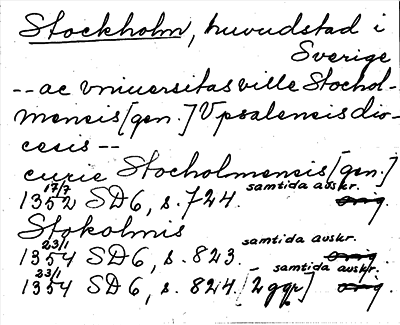 Stockholm, huvudstad i
Sverige
-- ac vniuersitas ville Stochol-
mensis [gen.] Vpsalensis dio-
cesis --
curie Stocholmensis [gen.]
1352 17/7 SD6, s. 724. samtida avskr. orig.
Stokolmis
1354 23/1 SD6, s. 823. samtida avskr. orig.
1354 23/1 SD6, s. 824. [2 ggr] samtida avskr. orig.